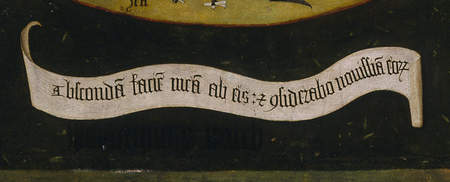 Abscondā faciē meā ab eis: ⁊ ꝯsiderabo novissīa eoꝝ